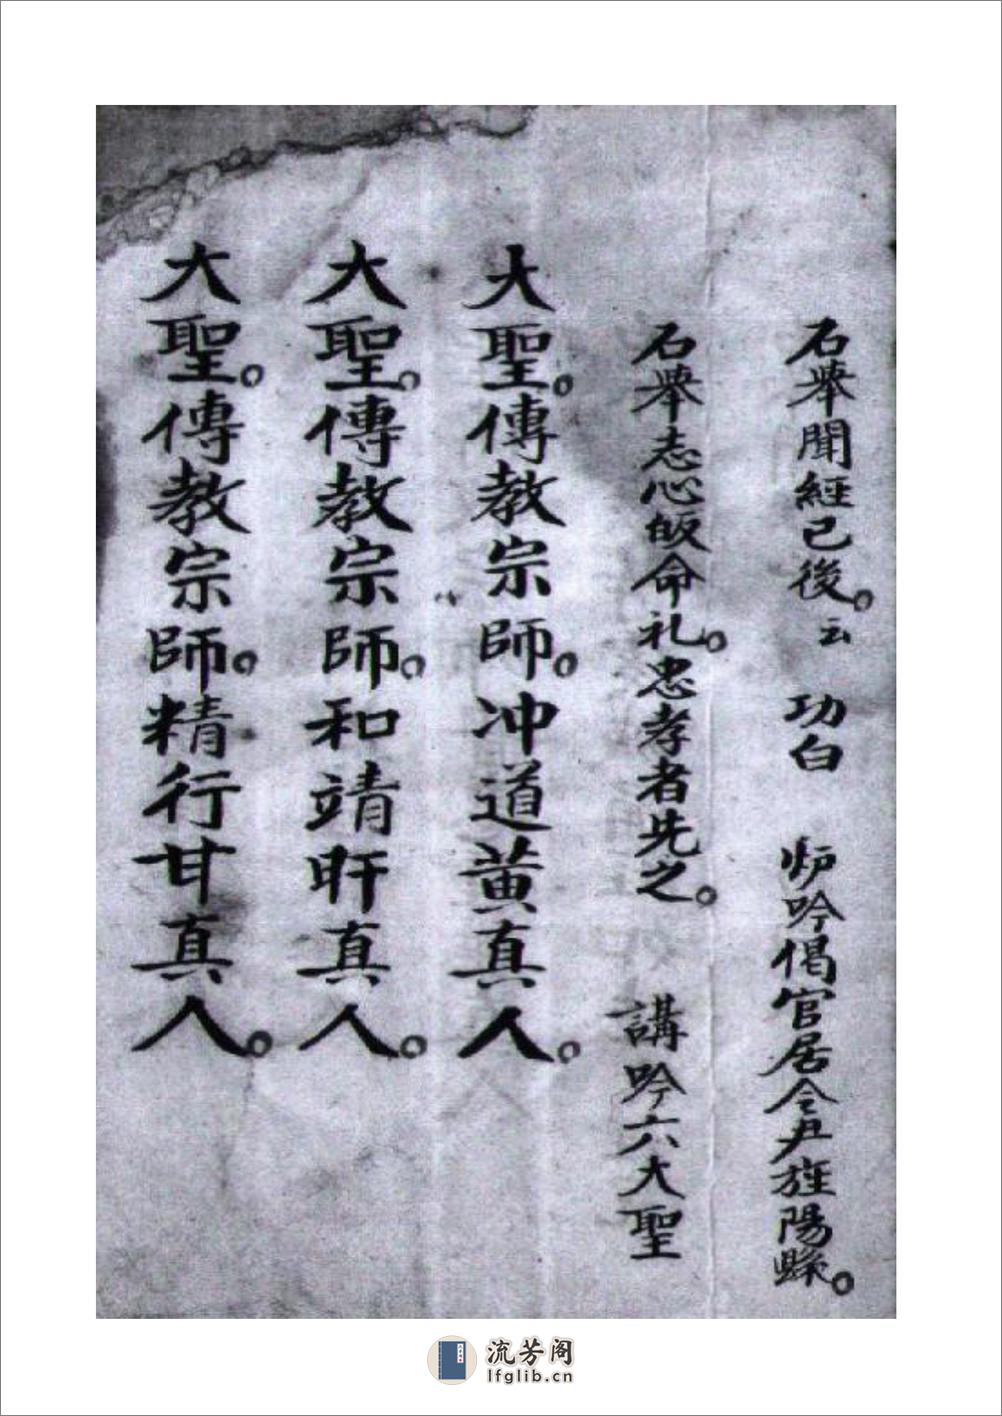 石舉聞經已後。云 功白 炉吟偈官居令尹旌陽縣。
石舉志心皈命礼。忠孝者先之。 講吟六大聖
大聖。傳教宗師。冲道黄真人。
大聖。傳教宗師。和靖旰真人。
大聖。傳教宗師。精行甘真人。
流芳阁
lfglib.cn